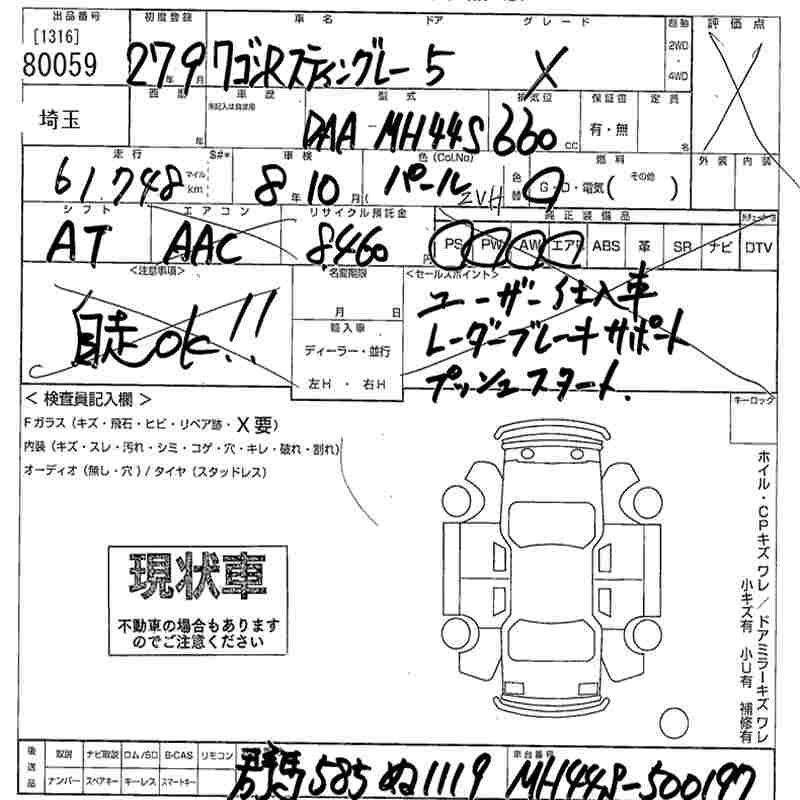 出品番号 初度登録 車名 ドア グレード 駆動 評価点
[1316] 80059 27年9月 ワゴンRスティングレー 5 X 2WD・4WD
埼玉 車歴 型式 排気位 保証書 定員
DAA-MH44S 660cc 有・無 名 外装 内装
走行 S#* 車検 色(Col.No) 色替 燃料
61,748 マイル km 8年10月 パール ZVH G・D・電気( その他 )
シフト エアコン リサイクル預託金 純正装備品
AT AAC 8460円 PS PW AW エアB ABS 革 SR ナビ DTV
<注意事項> 名変期限 <セールスポイント>
自走OK!! 月 日 ユーザー仕入車
輸入車 レーダーブレーキサポート
ディーラー・並行
左H・右H プッシュスタート.
<検査員記入欄> キーロック
Fガラス(キズ・飛石・ヒビ・リペア跡・X要)
内装(キズ・スレ・汚れ・シミ・コゲ・穴・キレ・破れ・割れ)
オーディオ(無し・穴)/タイヤ(スタッドレス)
ホイル・CPキズワレ/ドアミラーキズワレ
小キズ有 小U有 補修有
現状車
不動車の場合もあります
のでご注意ください
後送品 取説 ナビ取説 ロム/SD B-CAS リモコン 車台番号
ナンバー スペアキー キーレス スマートキー 群馬 585 ぬ1119 MH44S-500197